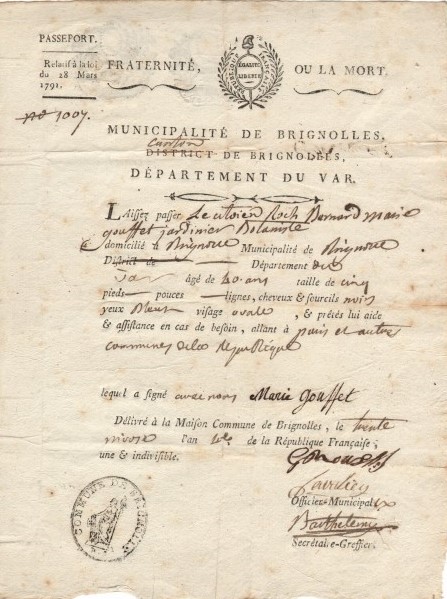 PASSEPORT.
Relatif à la loi
du 28 Mars
1791.
FRATERNITÉ,
RÉPUBLIQUE FRANÇAISE
ÉGALITÉ
LIBERTÉ
OU LA MORT.
nº 1007.
MUNICIPALITÉ DE BRIGNOLLES,
canton
DISTRICT DE BRIGNOLLES,
DÉPARTEMENT DU VAR.
LAISSEZ passer Le citoien Roch Bernard marie
gouffet jardinier Botaniste
domicilié à Brignolle Municipalité de Brignolle
District de Département du
Var âgé de 40 ans taille de cinq
pieds pouces lignes, cheveux & sourcils noirs
yeux Bleus visage ovale, & prêtés lui aide
& assistance en cas de besoin, allant à paris et autres
communes de la République
lequel a signé avec nous Marie Gouffet
Délivré à la Maison Commune de Brignolles, le trente
nivose l'an 4e. de la République Française,
une & indivisible.
Officier-Municipal
Barthelemy
Secrétaire-Greffier.
COMMUNE DE BRIGNOLLE